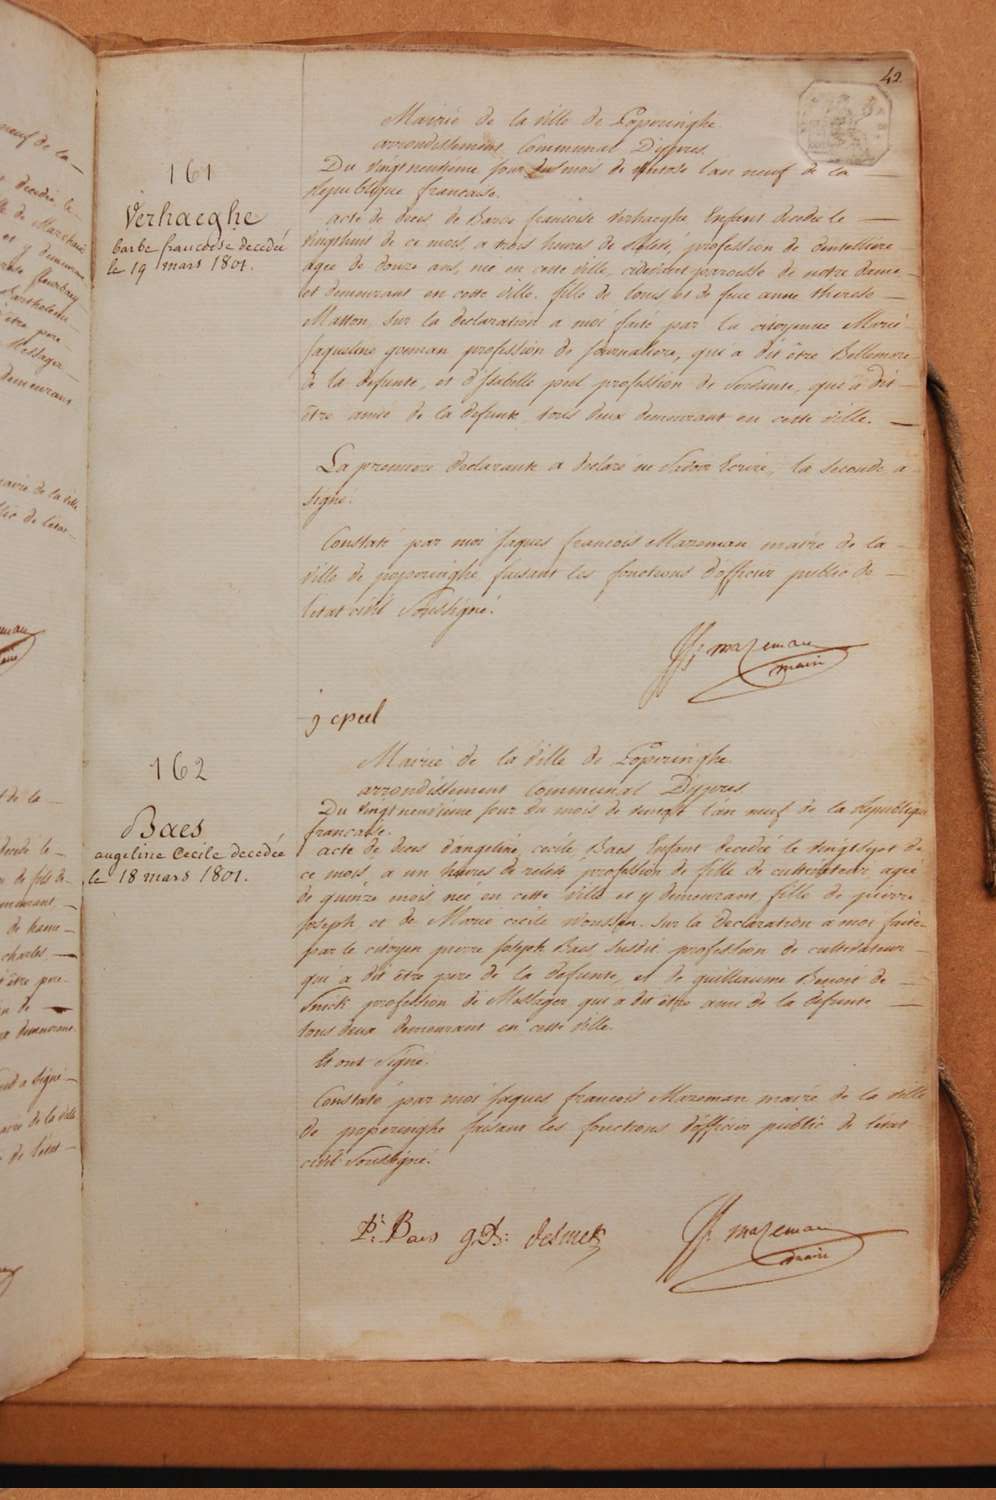 42
161
Verhaeghe
barbe francoise decedée
le 19 mars 1801.
Mairie de la ville de Poperinghe
arrondissement Communal Dÿpres
Du vingt neuvieme jour du mois de ventose l'an neuf de la
republique francaise.
acte de deces de Barbe francoise verhaeghe Enfant decedée le
vingthuit de ce mois, a trois heures de relevée, profession de dentelliere
agée de douze ans, née en cette ville, cidevant paroisse de notre dame
et demeurant en cette ville. fille de louis et de feue anne therese
Matton, sur la declaration a moi faite par la citoyenne Marie
Jaqueline profession de Journaliere, qui a dit être Bellemere
de la defunte, et d'Isabelle peel profession de Servante, qui a dit
être amie de la defunte, tous deux demeurant en cette ville.
La premiere declarante a declaré ne Scavoir Ecrire, la seconde a
signé.
Constaté par moi Jaques francois Mazeman maire de la
ville de poperinghe faisant les fonctions d'officier public de
l'etat civil Soussigné.
JF. mazeman
maire
peel
162
Baes
angeline Cecile decedée
le 18 mars 1801.
Mairie de la Ville de Poperinghe
arrondissement Communal Dÿpres
Du vingt neuvieme jour du mois de ventose l'an neuf de la republique
francaise.
acte de deces d'angeline, cecile, Baes Enfant decedée le vingtsept de
ce mois, a un heures de relevée, profession de fille de cultivateur agée
de quinze mois née en cette ville et y demeurant fille de pierre
Joseph et de Marie cecile. Sur la declaration a moi faite
par le citoyen pierre Joseph Baes Susdit profession de cultivateur
qui a dit être pere de la defunte, et de guillaume Benoit de
Smick profession de Messager qui a dit être ami de la defunte
tous deux demeurant en cette ville.
Et ont Signé.
Constaté par moi Jaques francois Mazeman maire de la ville
de poperinghe faisant les fonctions d'officier public de l'etat
civil Soussigné.
P: Baes g.B: desmek
JF. mazeman
maire